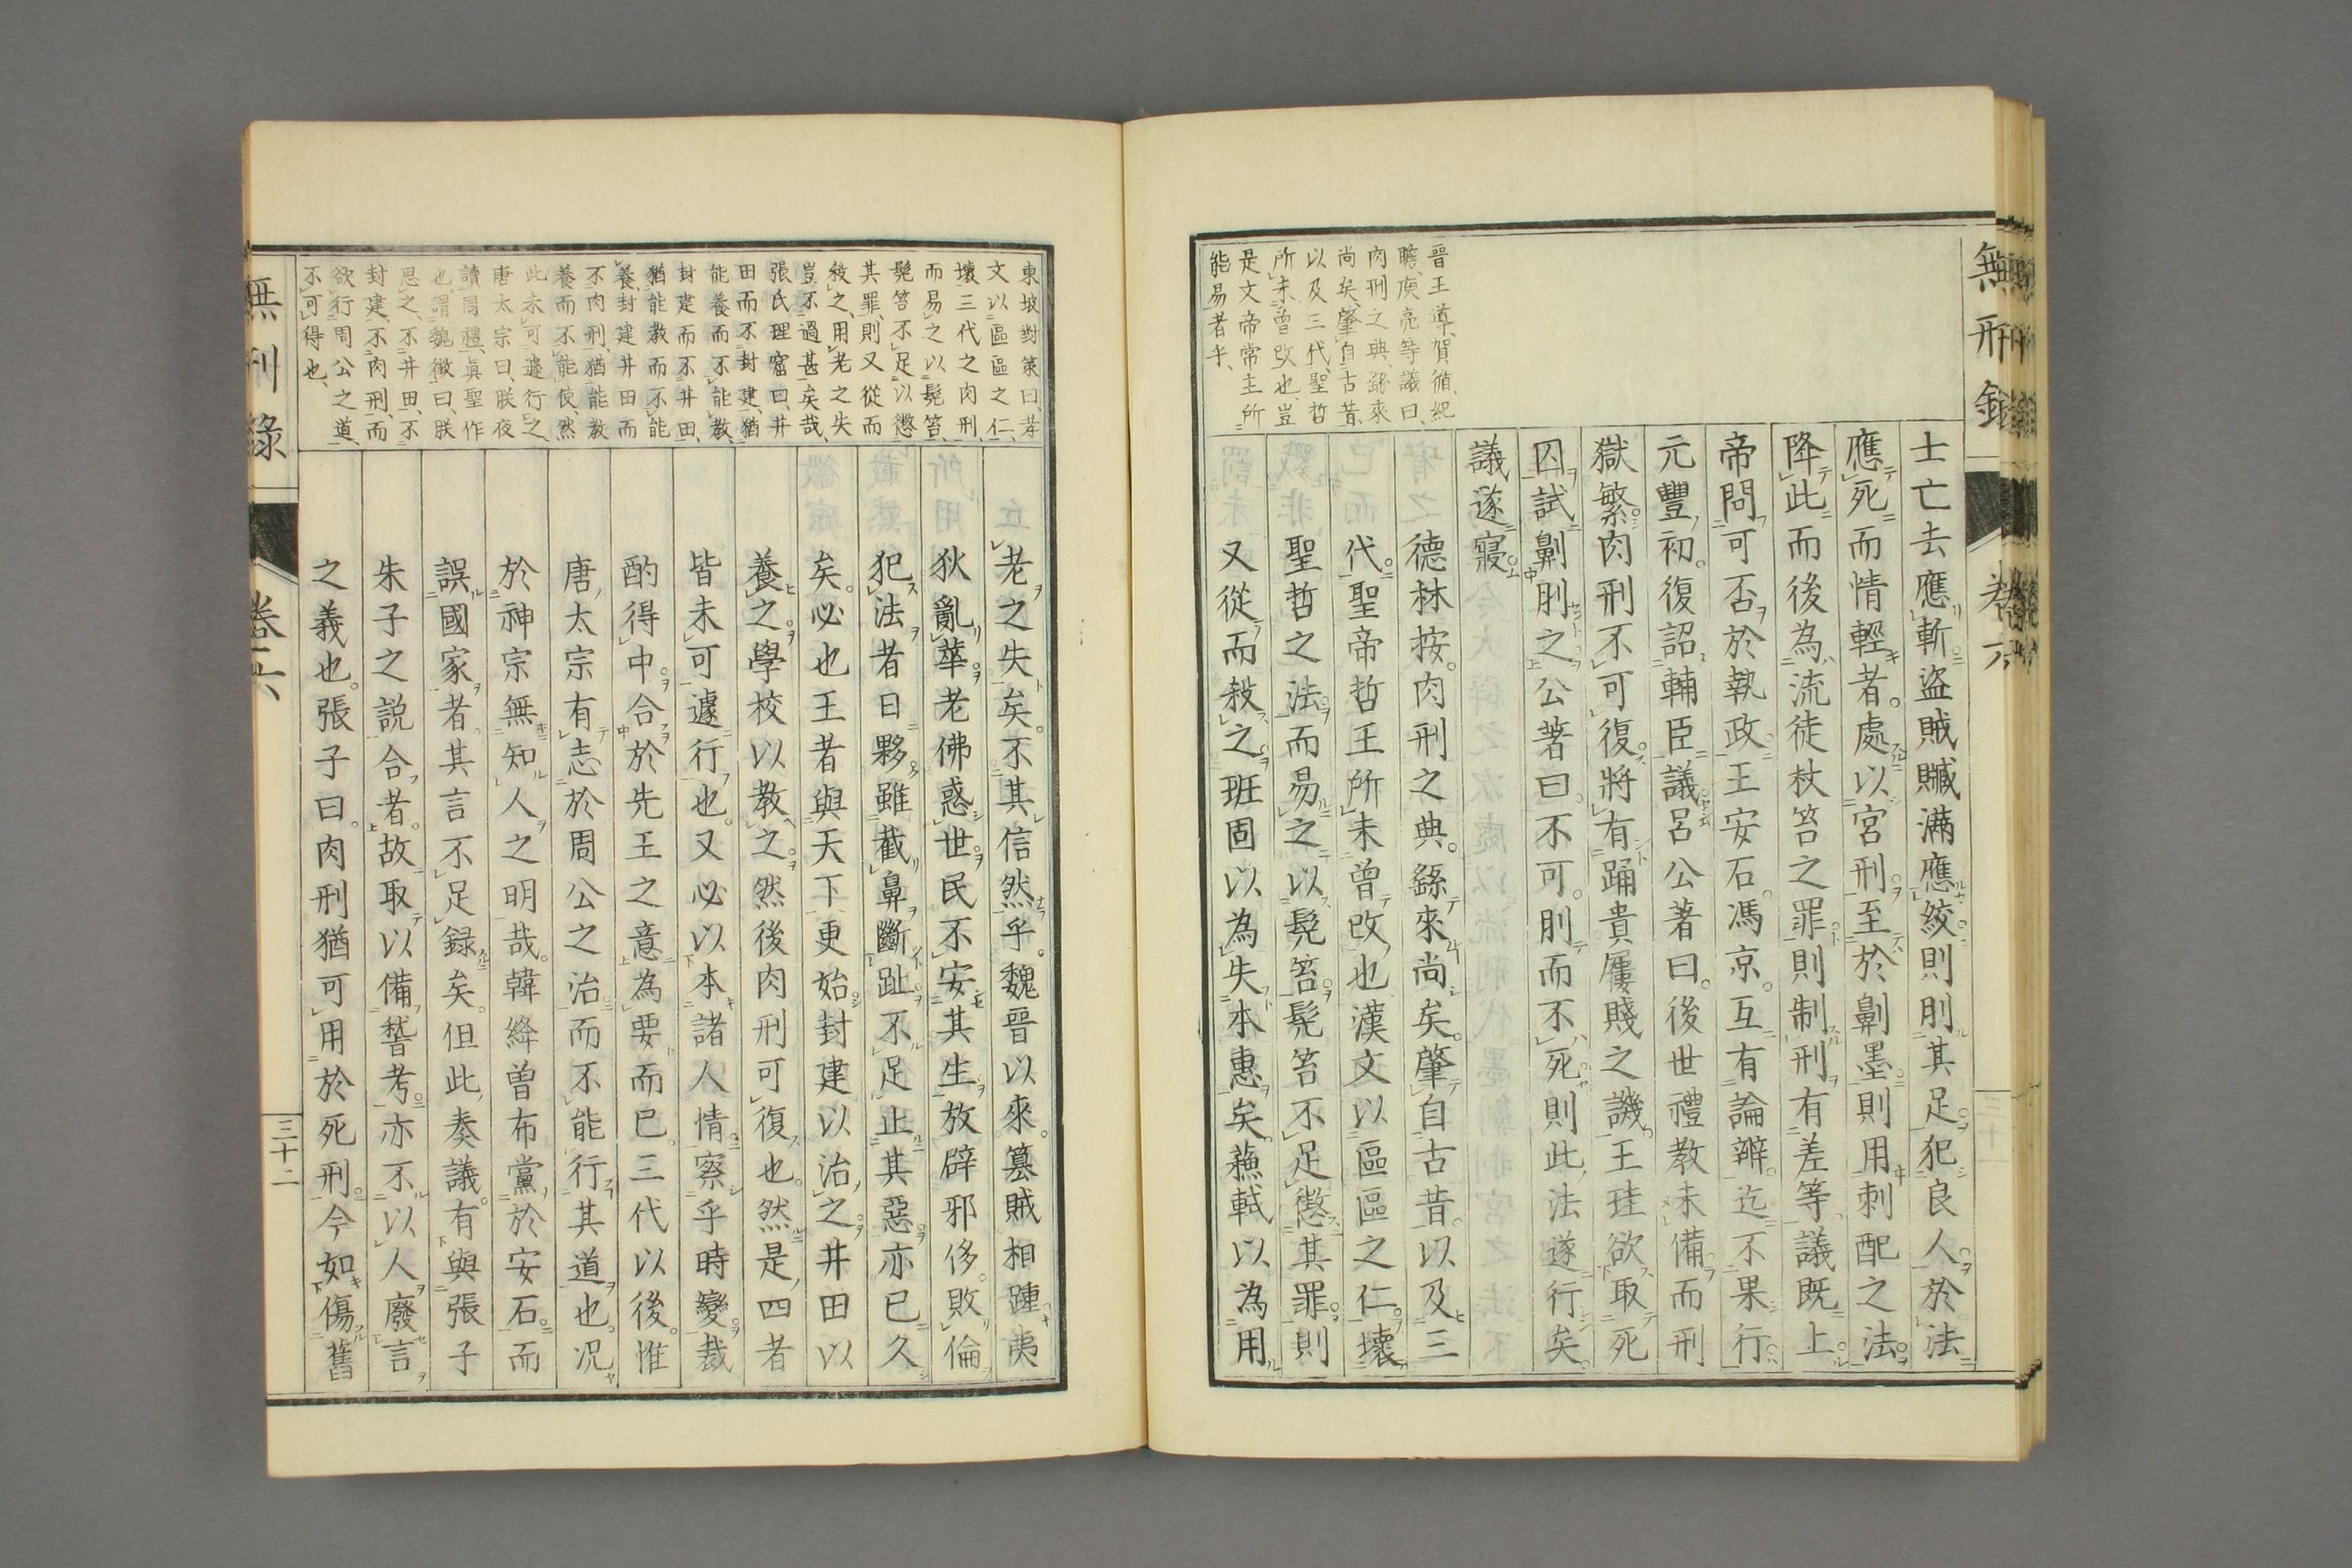 無刑錄
卷六
晉王導、賀循、紀
瞻、庾亮等議曰、
肉刑之典、繇來
尚矣、肇自古昔、
以及三代、聖哲
所未曾改也、豈
是文帝常主所
能易者乎、
士亡去應斬盜賊贓滿應絞則刖其足犯良人於法
應死而情輕者。處以宮刑至於劓墨則用刺配之法
降此而後為流徒杖笞之罪則制刑有差等議既上
帝問可否於執政王安石。馮京。互有論辨。迄不果行
元豐初。復詔輔臣議呂公著曰。後世禮教未備而刑
獄繁肉刑不可復將有踊貴屨賤之譏。王珪欲取死
囚試劓刖之公著曰不可。刖而不死則此法遂行矣
議遂寢
德林按。肉刑之典。繇來尚矣。肇自古昔以及三
代。聖帝哲王所未曾改也漢文以區區之仁壞
聖哲之法而易之以髡笞髡笞不足懲其罪則
又從而殺之班固以為失本惠矣。蘓軾以為用
東坡對策曰、孝
文以區區之仁、
壞三代之肉刑、
而易之以髡笞、
髡笞不足以懲
其罪、則又從而
殺之、用老之失、
豈不過甚矣哉、
張氏理窟曰、井
田而不封建、猶
能養而不能教、
封建而不井田、
猶能教而不能
養、封建井田而
不肉刑、猶能教
養而不能使、然
此未可遽行之、
唐太宗曰、朕夜
讀周禮、眞聖作
也、謂魏徵曰、朕
思之、不井田、不
封建、不肉刑、而
欲行周公之道、
不可得也、
老之失矣。不其信然乎。魏晉以來。篡賊相踵夷
狄亂華老佛惑世民不安其生放辟邪侈。敗倫
犯法者日夥雖截鼻斷趾不足止其惡亦已久
矣。必也王者與天下更始封建以治之井田以
養之學校以教之然後肉刑可復也。然是四者
皆未可遽行也。又必以本諸人情察乎時變裁
酌得中。合於先王之意為要而已。三代以後。惟
唐太宗有志於周公之治而不能行其道也。况
於神宗無知人之明哉。韓絳曾布黨於安石而
誤國家者其言不足録矣。但此奏議。有與張子
朱子之説合者。故取以備耆考亦不以人廢言
之義也。張子曰。肉刑猶可用於死刑今如傷舊
無刑錄
卷六
三十二